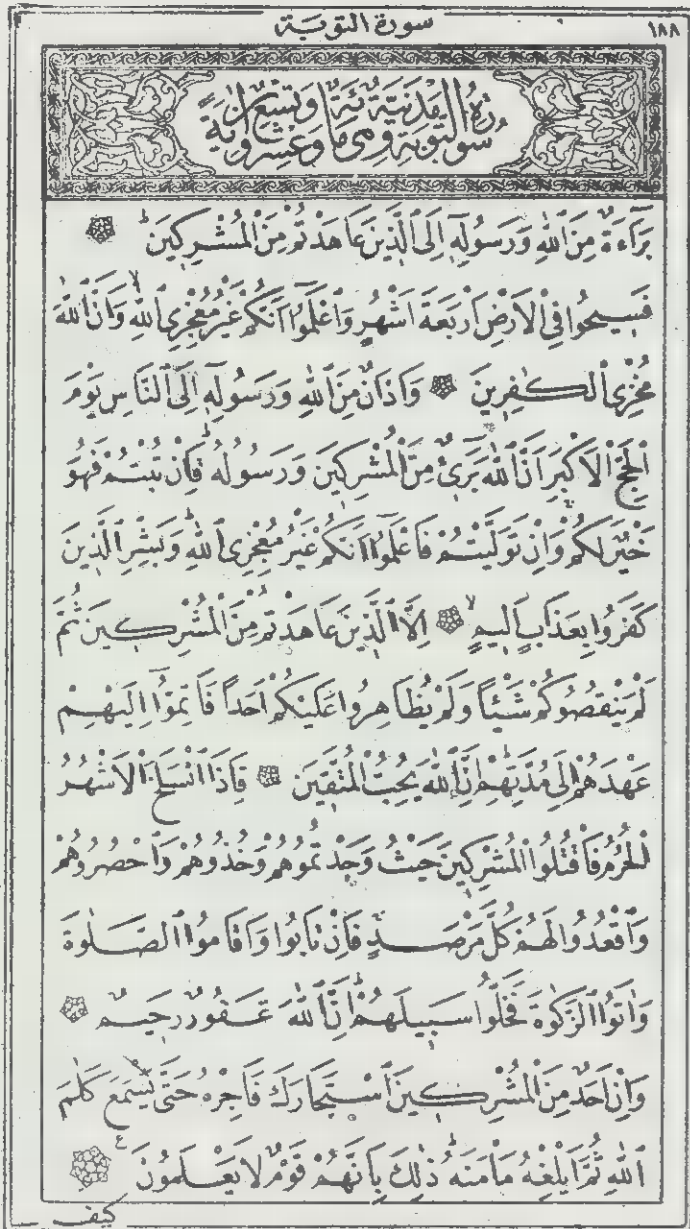 سورة التوبة ١٨٨
سورة التوبة مدنية وهي مائة وتسع وعشرون آية
بَرَٓاءَةٌ مِنَ ٱللّٰهِ وَرَسُولِهِٓ اِلَى ٱلَّذِينَ عَاهَدْتُمْ مِنَ ٱلْمُشْرِكِينَ
فَسِيحُوا فِى ٱلْاَرْضِ اَرْبَعَةَ اَشْهُرٍ وَٱعْلَمُٓوا اَنَّكُمْ غَيْرُ مُعْجِزِى ٱللّٰهِ وَاَنَّ ٱللّٰهَ
مُخْزِى ٱلْكٰفِرِينَ وَاَذَانٌ مِنَ ٱللّٰهِ وَرَسُولِهِٓ اِلَى ٱلنَّاسِ يَوْمَ
ٱلْحَجِّ ٱلْاَكْبَرِ اَنَّ ٱللّٰهَ بَرِٓىءٌ مِنَ ٱلْمُشْرِكِينَ وَرَسُولُهُ فَاِنْ تُبْتُمْ فَهُوَ
خَيْرٌ لَكُمْ وَاِنْ تَوَلَّيْتُمْ فَاعْلَمُٓوا اَنَّكُمْ غَيْرُ مُعْجِزِى ٱللّٰهِ وَبَشِّرِ ٱلَّذِينَ
كَفَرُوا بِعَذَابٍ اَلِيمٍ اِلَّا ٱلَّذِينَ عَاهَدْتُمْ مِنَ ٱلْمُشْرِكِينَ ثُمَّ
لَمْ يَنْقُصُوكُمْ شَيْـًٔا وَلَمْ يُظَاهِرُوا عَلَيْكُمْ اَحَدًا فَاَتِمُّٓوا اِلَيْهِمْ
عَهْدَهُمْ اِلٰى مُدَّتِهِمْ اِنَّ ٱللّٰهَ يُحِبُّ ٱلْمُتَّقِينَ فَاِذَا ٱنْسَلَخَ ٱلْاَشْهُرُ
ٱلْحُرُمُ فَاقْتُلُوا ٱلْمُشْرِكِينَ حَيْثُ وَجَدْتُمُوهُمْ وَخُذُوهُمْ وَٱحْصُرُوهُمْ
وَٱقْعُدُوا لَهُمْ كُلَّ مَرْصَدٍ فَاِنْ تَابُوا وَاَقَامُوا ٱلصَّلٰوةَ
وَاٰتَوُا ٱلزَّكٰوةَ فَخَلُّوا سَبِيلَهُمْ اِنَّ ٱللّٰهَ غَفُورٌ رَحِيمٌ
وَاِنْ اَحَدٌ مِنَ ٱلْمُشْرِكِينَ ٱسْتَجَارَكَ فَاَجِرْهُ حَتّٰى يَسْمَعَ كَلٰمَ
ٱللّٰهِ ثُمَّ اَبْلِغْهُ مَأْمَنَهُ ذٰلِكَ بِاَنَّهُمْ قَوْمٌ لَا يَعْلَمُونَ
كيف